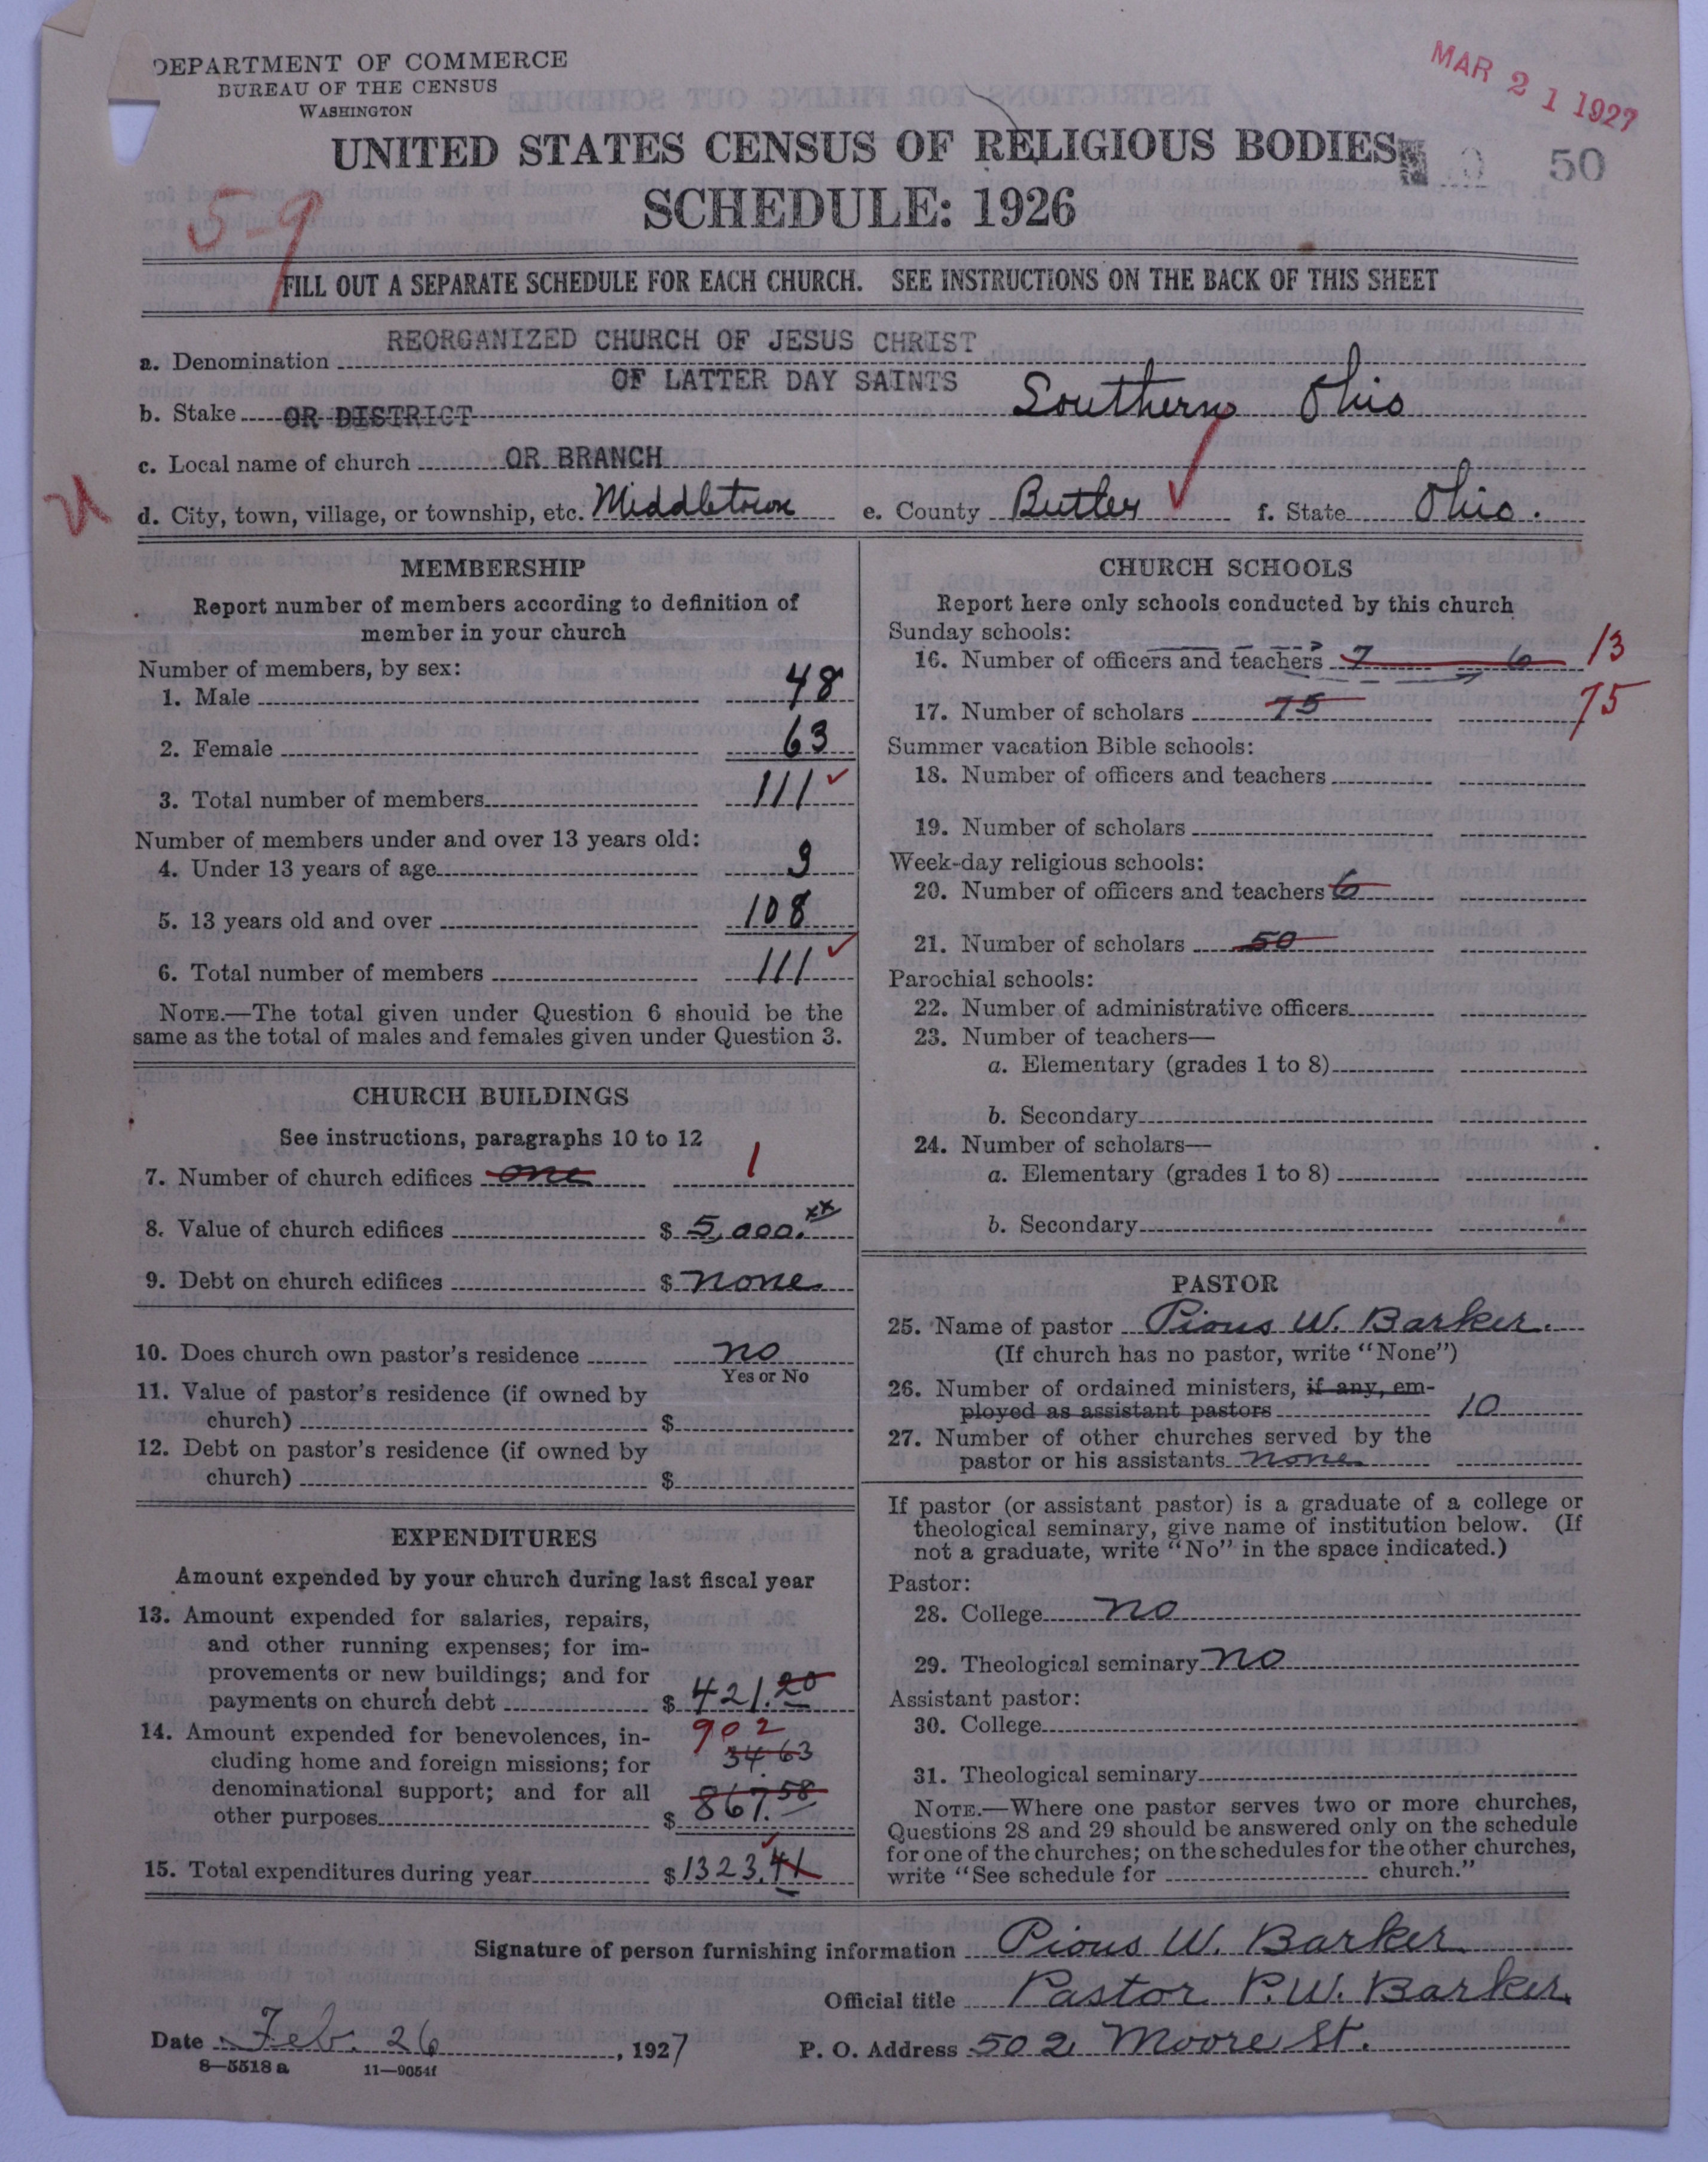 DEPARTMENT OF COMMERCE
BUREAU OF THE CENSUS
WASHINGTON
MAR 21 1927
UNITED STATES CENSUS OF RELIGIOUS BODIES
50
SCHEDULE: 1926
5-9
FILL OUT A SEPARATE SCHEDULE FOR EACH CHURCH. SEE INSTRUCTIONS ON THE BACK OF THIS SHEET
REORGANIZED CHURCH OF JESUS CHRIST
a. Denomination
OF LATTER DAY SAINTS
b. Stake OR DISTRICT Southern Ohio
c. Local name of church OR BRANCH
d. City, town, village, or township, etc. Middletown e. County Butler f. State Ohio.
MEMBERSHIP
Report number of members according to definition of
member in your church
Number of members, by sex:
1. Male 48
2. Female 63
3. Total number of members 111
Number of members under and over 13 years old:
4. Under 13 years of age 3
5. 13 years old and over 108
6. Total number of members 111
NOTE.—The total given under Question 6 should be the
same as the total of males and females given under Question 3.
CHURCH BUILDINGS
See instructions, paragraphs 10 to 12
7. Number of church edifices one 1
8. Value of church edifices $ 5,000.xx
9. Debt on church edifices $ none
10. Does church own pastor's residence no
Yes or No
11. Value of pastor's residence (if owned by
church) $
12. Debt on pastor's residence (if owned by
church) $
EXPENDITURES
Amount expended by your church during last fiscal year
13. Amount expended for salaries, repairs,
and other running expenses; for im-
provements or new buildings; and for
payments on church debt $ 421.20
14. Amount expended for benevolences, in- 902
cluding home and foreign missions; for 34.63
denominational support; and for all 867.58
other purposes $
15. Total expenditures during year $ 1323.41
CHURCH SCHOOLS
Report here only schools conducted by this church
Sunday schools:
16. Number of officers and teachers 7 6 13
17. Number of scholars 75 75
Summer vacation Bible schools:
18. Number of officers and teachers
19. Number of scholars
Week-day religious schools:
20. Number of officers and teachers 6
21. Number of scholars 50
Parochial schools:
22. Number of administrative officers
23. Number of teachers—
a. Elementary (grades 1 to 8)
b. Secondary
24. Number of scholars—
a. Elementary (grades 1 to 8)
b. Secondary
PASTOR
25. Name of pastor Pious W. Barker.
(If church has no pastor, write "None")
26. Number of ordained ministers, if any, em-
ployed as assistant pastors 10
27. Number of other churches served by the
pastor or his assistants none
If pastor (or assistant pastor) is a graduate of a college or
theological seminary, give name of institution below. (If
not a graduate, write "No" in the space indicated.)
Pastor:
28. College no
29. Theological seminary no
Assistant pastor:
30. College
31. Theological seminary
NOTE.—Where one pastor serves two or more churches,
Questions 28 and 29 should be answered only on the schedule
for one of the churches; on the schedules for the other churches,
write "See schedule for church."
Signature of person furnishing information Pious W. Barker
Official title Pastor P.W. Barker.
Date Feb. 26, 1927 P. O. Address 502 Moore St.
8—5518 a 11—9054f